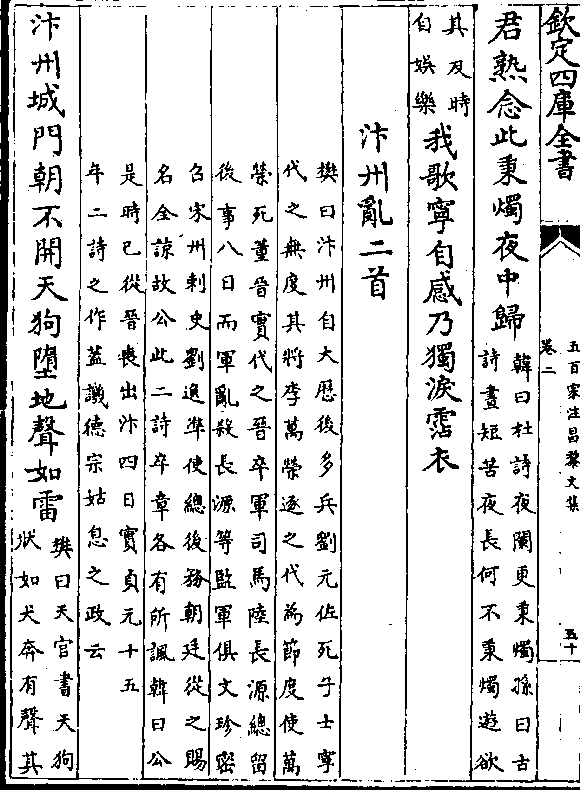 欽定四庫全書
五百家注昌黎文集
卷二
五十
君熟念此秉燭夜中歸
韓曰杜詩夜闌更秉燭孫曰古
詩晝短苦夜長何不秉燭遊欲
其及時
自娛樂
我歌寧自感乃獨淚霑衣
汴州亂二首
樊曰汴州自大厯後多兵劉元佐死子士寧
代之無度其將李萬榮逐之代為節度使萬
榮死董晉實代之晉卒軍司馬陸長源總留
後事八日而軍亂殺長源等監軍俱文珍密
召宋州刺史劉逸準使總後務朝廷從之賜
名全諒故公此二詩卒章各有所諷韓曰公
是時已從晉喪出汴四日實貞元十五
年二詩之作蓋譏德宗姑息之政云
汴州城門朝不開天狗墮地聲如雷
樊曰天官書天狗
狀如犬奔有聲其